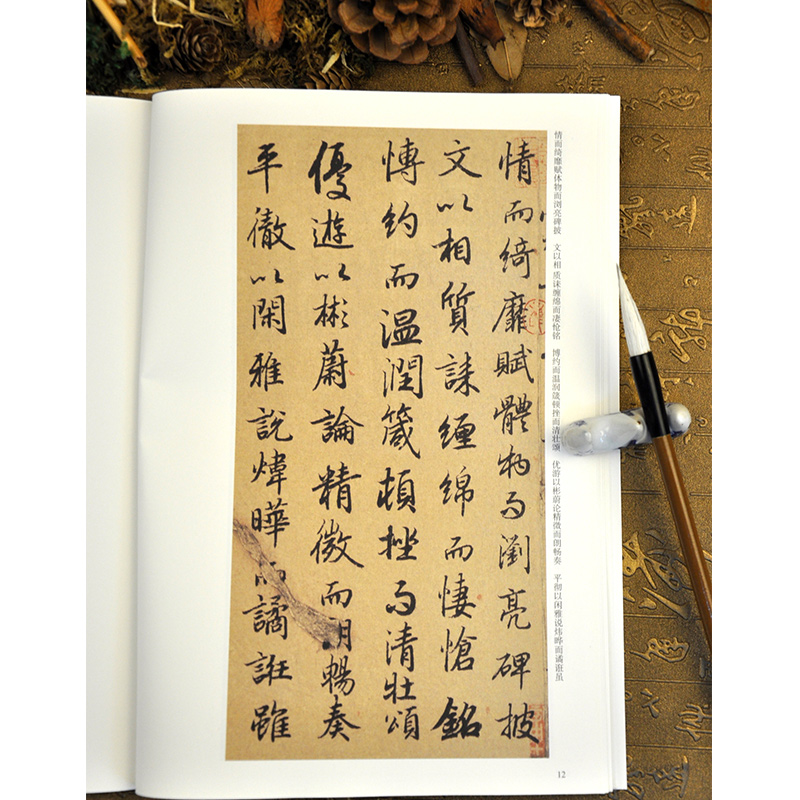 情而绮靡赋体物而浏亮碑披 文以相质诔缠绵而凄怆铭 博约而温润箴顿挫而清壮颂 优游以彬蔚论精微而朗畅奏 平彻以闲雅说炜晔而谲诳虽
情而綺靡賦體物而瀏亮碑披
文以相質誄纏綿而悽愴銘
博約而温潤箴頓挫而清壯頌
優遊以彬蔚論精微而朗暢奏
平徹以閑雅說煒曄而譎誑雖
12